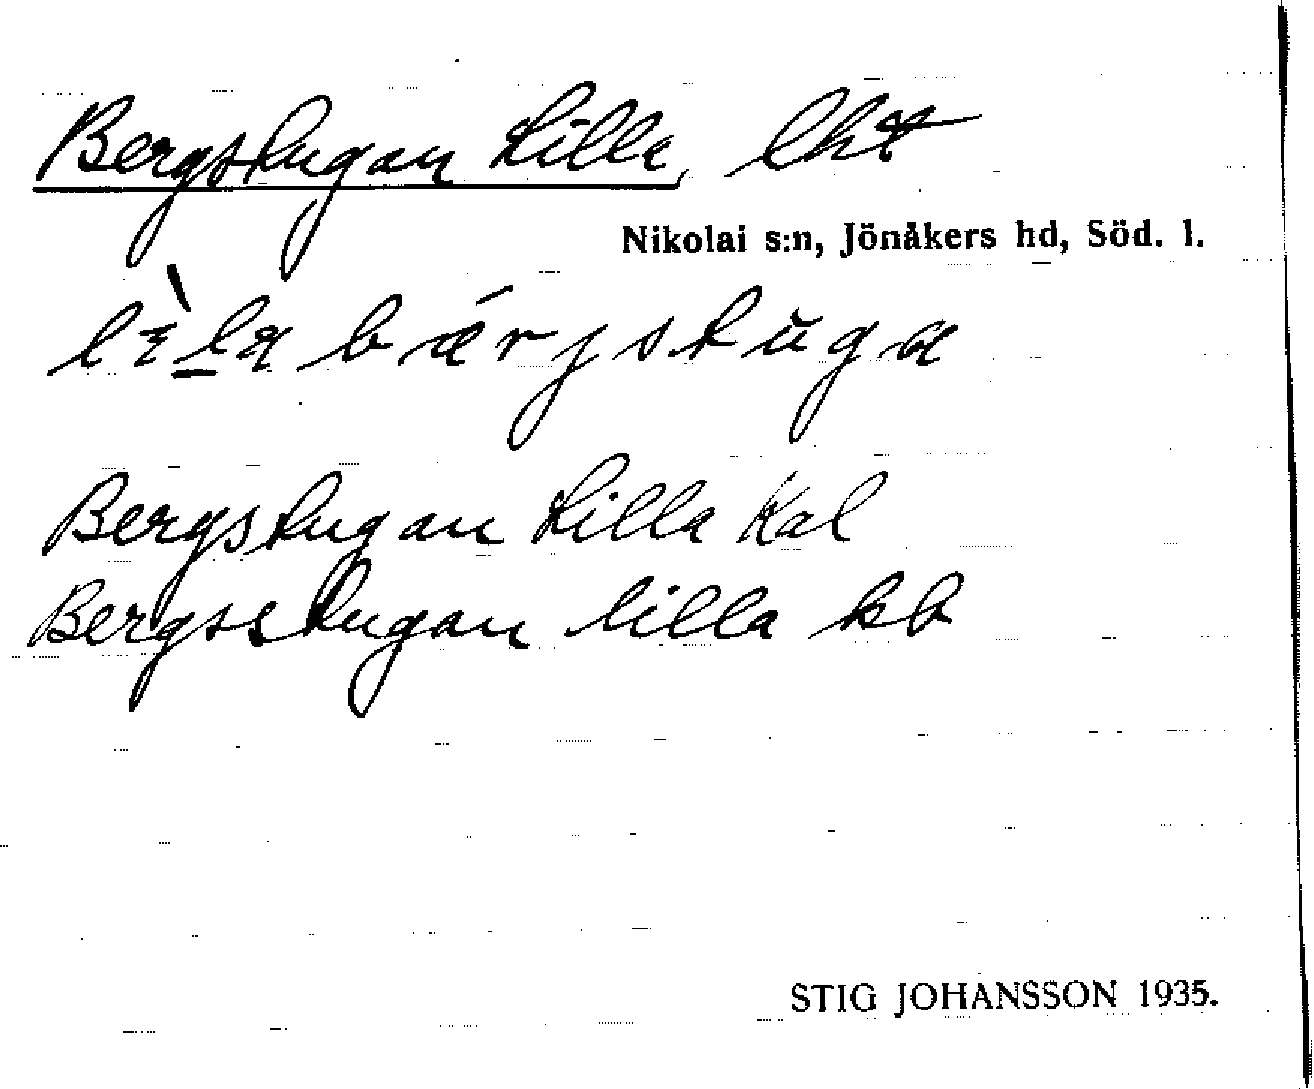 Bergstugan Lilla, lht
Nikolai s:n, Jönåkers hd, Söd. l.
lìla bǽrjstŭga
Bergstugan Lilla Kal
Bergsstugan lilla kb
STIG JOHANSSON 1935.